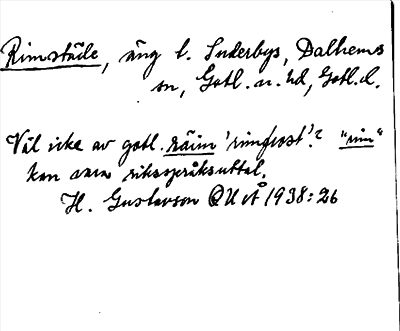 Rimstäde, äng t. Suderbys, Dalhems
sn, Gotl. n. hd, Gotl. l.
Väl icke av gotl. räim 'rimfrost'? "rim"
kan vara riksspråksuttal.
H. Gustavson OUÅ 1938:26